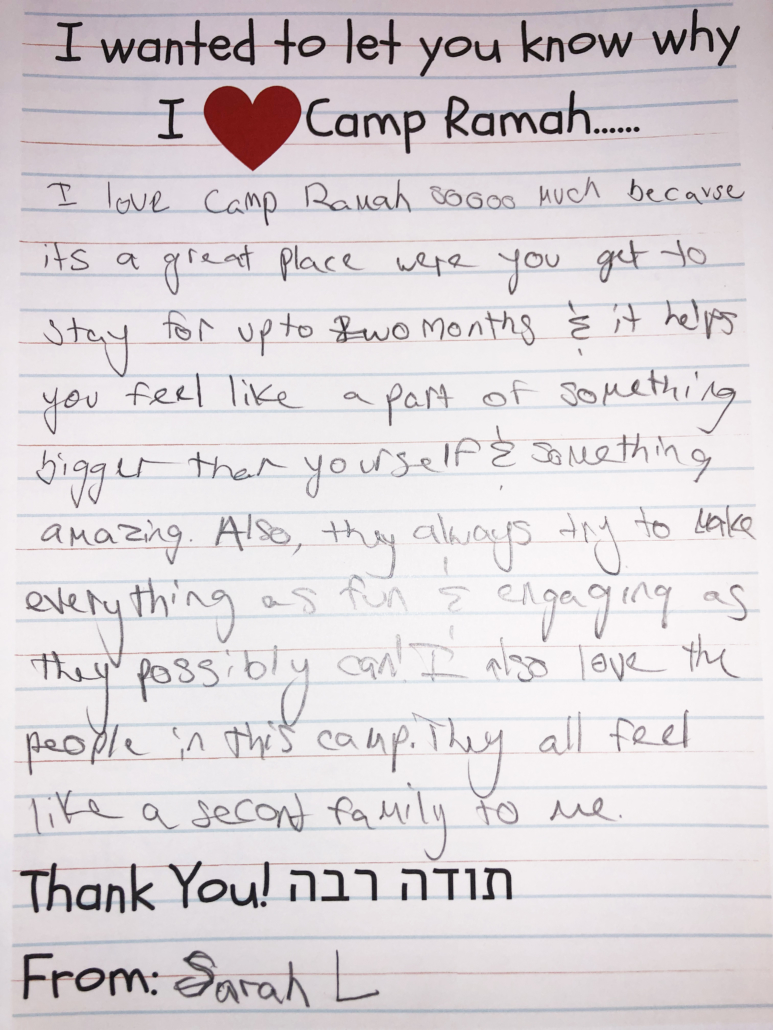 I wanted to let you know why
I ❤ Camp Ramah......
I love Camp Ramah sooooo much because
its a great place were you get to
stay for up to two months & it helps
you feel like a part of something
bigger than yourself & something
amazing. Also, they always try to make
everything as fun & engaging as
they possibly can! I also love the
people in this camp. They all feel
like a second family to me.
Thank You! תודה רבה
From: Sarah L